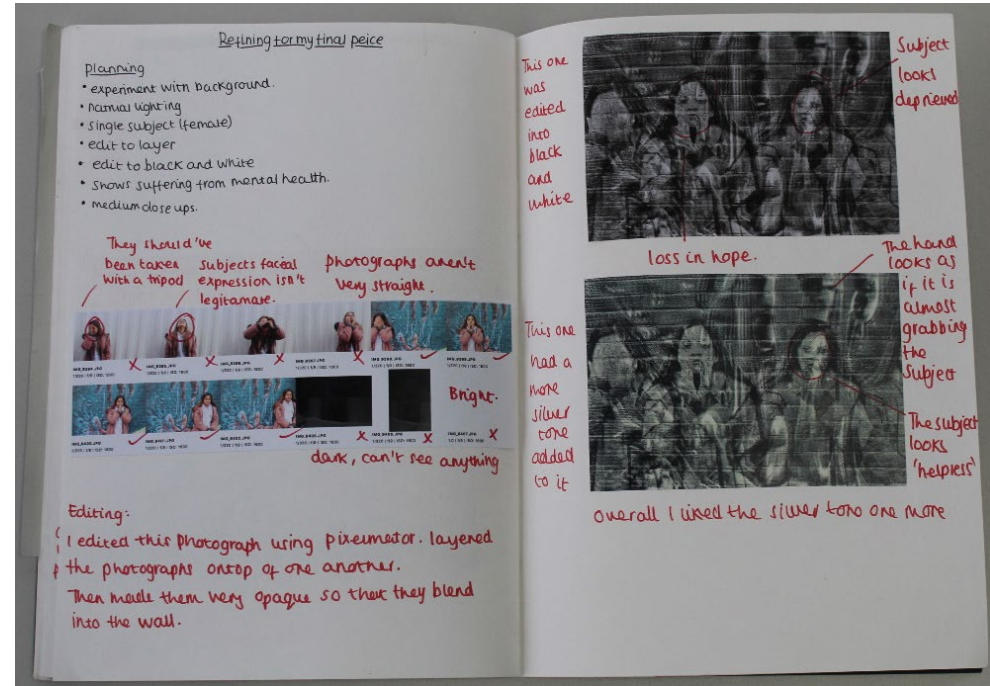 Refining for my final peice
Planning
• experiment with background.
• natural lighting
• single subject (female)
• edit to layer
• edit to black and white
• shows suffering from mental health.
• medium close ups.
They should've
been taken
with a tripod
subjects facial
expression isn't
legitamate.
photographs aren't
very straight.
Bright.
dark, can't see anything
Editing:
I edited this photograph using pixelmator. layered
the photographs ontop of one another.
Then made them very opaque so that they blend
into the wall.
This one
was
edited
into
black
and
white
Subject
looks
deprieved
loss in hope.
The hand
looks as
if it is
almost
grabbing
the
subject
This one
had a
more
silver
tone
added
to it
The subject
looks
'helpless'
Overall I liked the silver tone one more